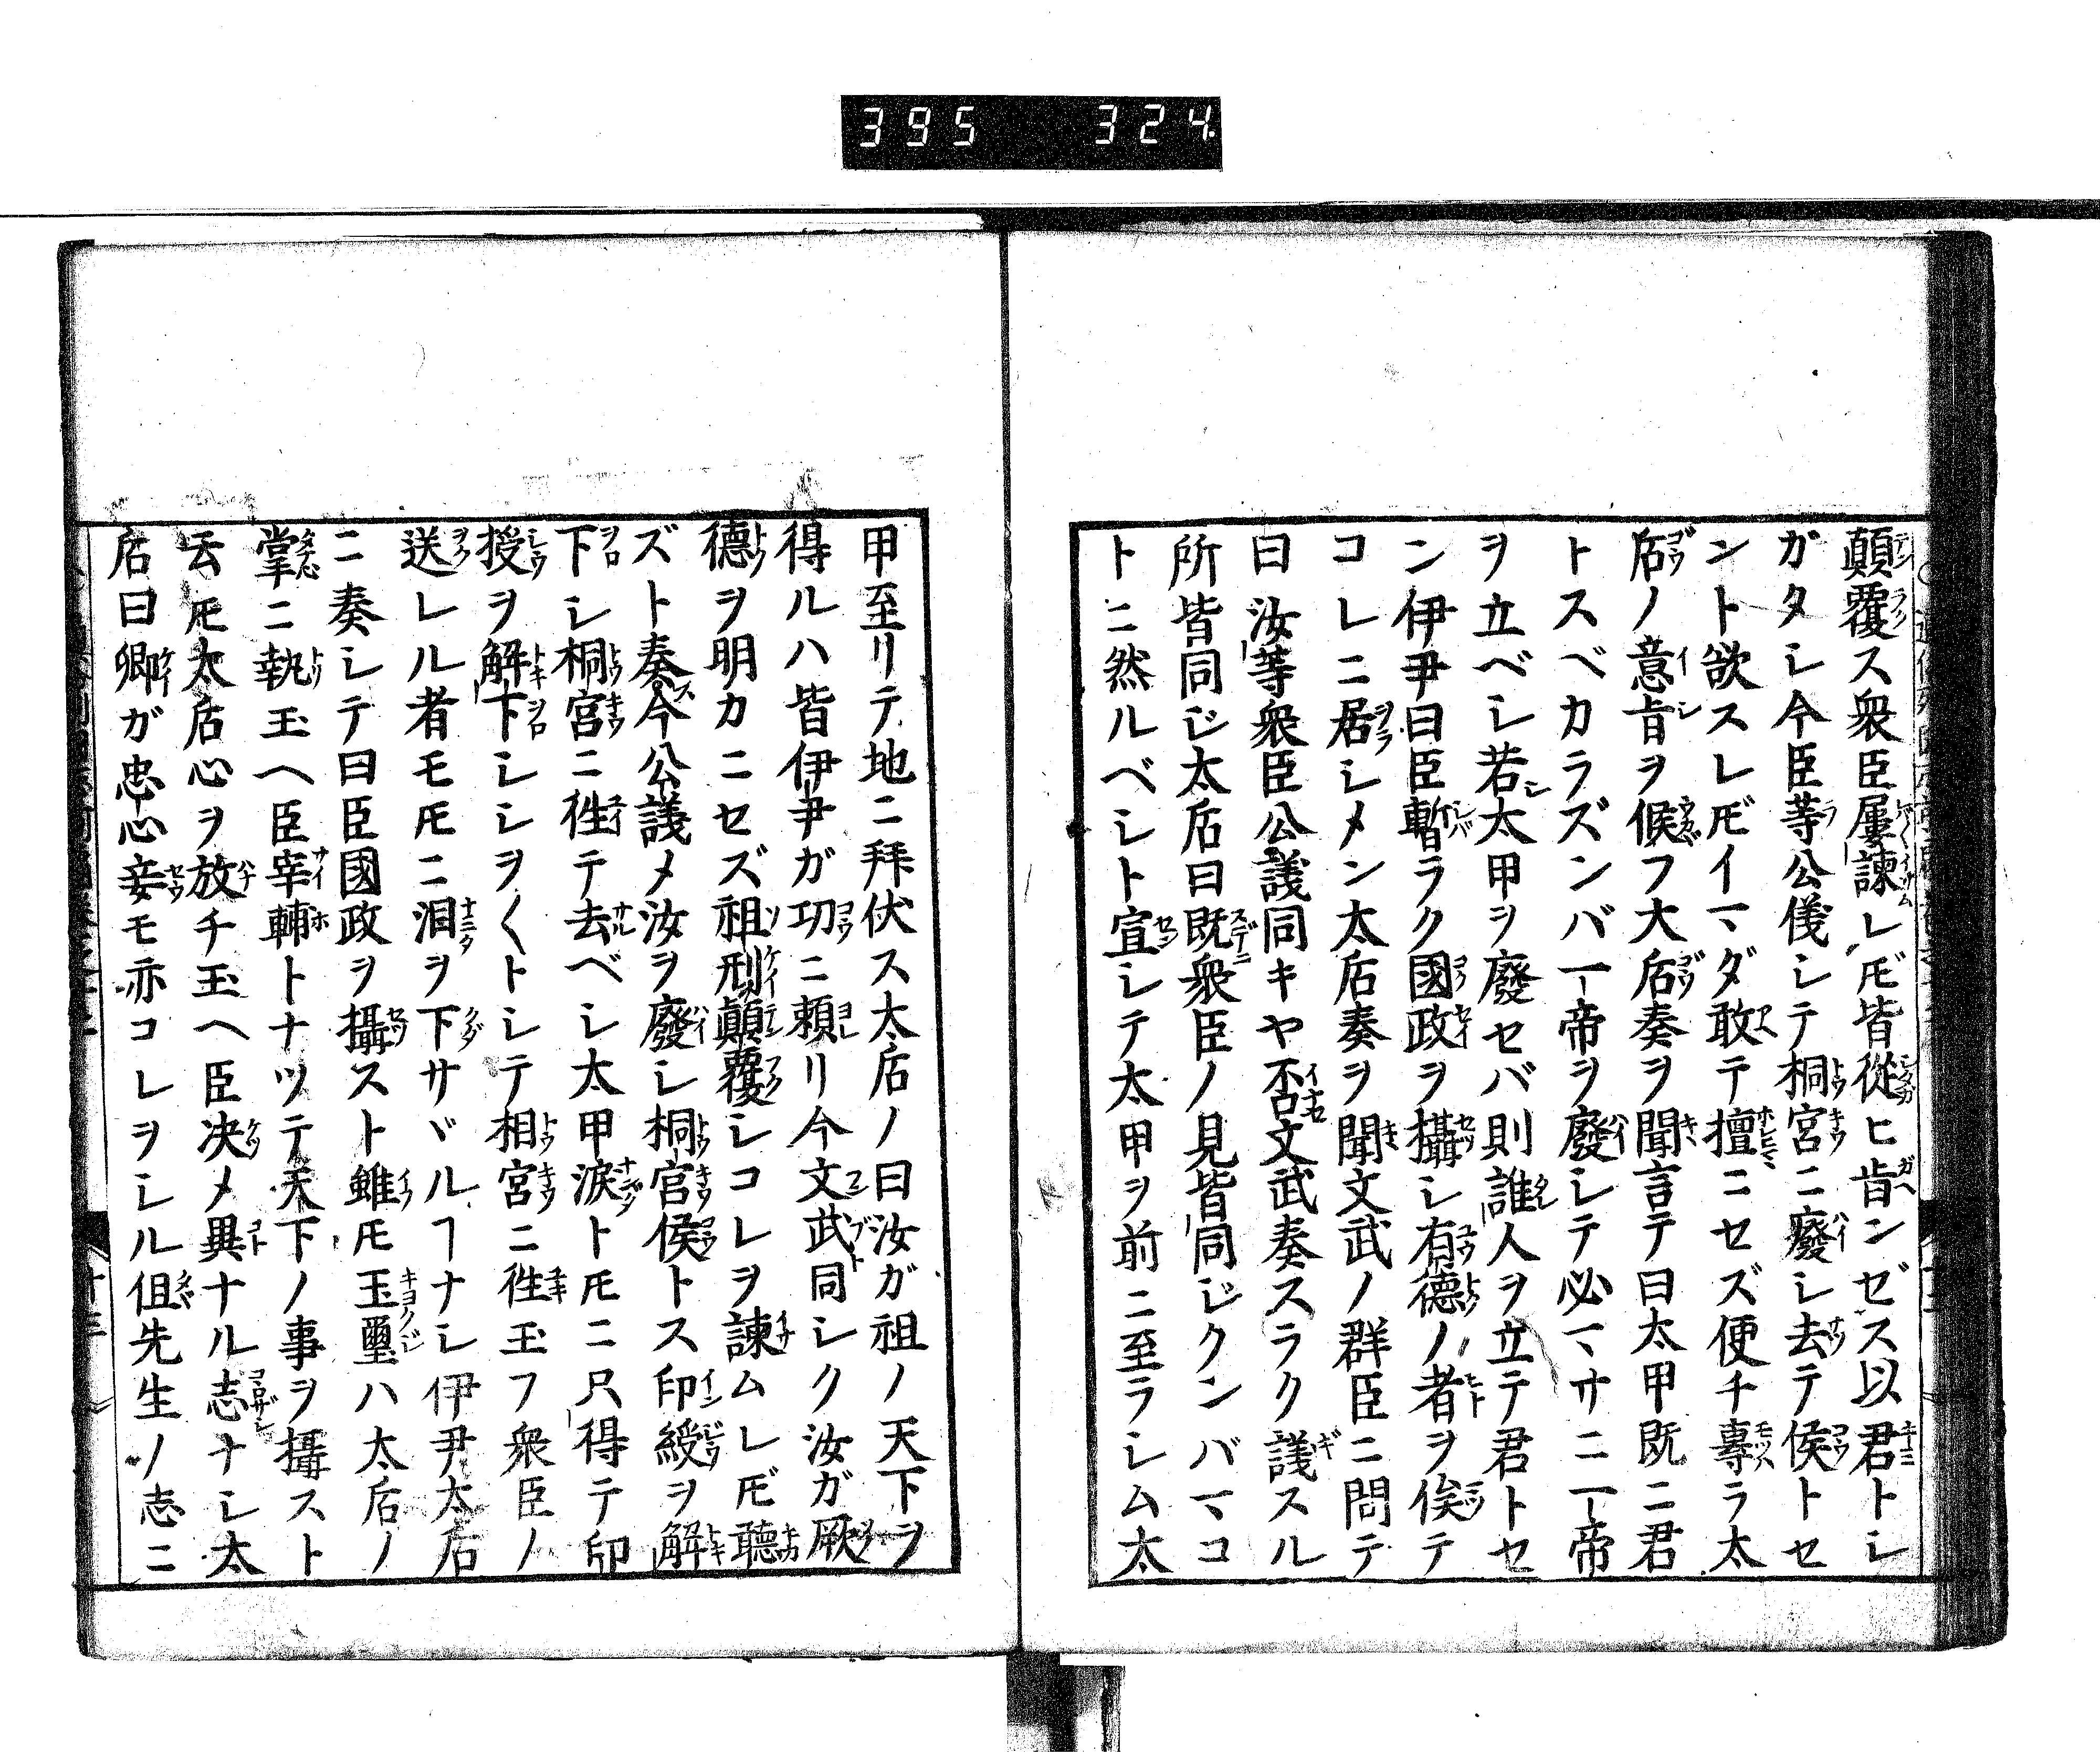 395 324
顛覆ス衆臣屢諫レ𪜈皆從ヒ肯ンゼス以君トシ
ガタシ今臣等公儀シテ桐宮ニ廢シ去テ侯トセ
ント欲スレ𪜈イマダ敢テ擅ニセズ便チ專ラ太
后ノ意旨ヲ候フ大后奏ヲ聞言テ曰太甲既ニ君
トスベカラズンバ一帝ヲ廢シテ必マサニ一帝
ヲ立ベシ若太甲ヲ廢セバ則誰人ヲ立テ君トセ
ン伊尹曰臣暫ラク國政ヲ攝シ有德ノ者ヲ俟テ
コレニ居シメン太后奏ヲ聞文武ノ群臣ニ問テ
曰汝等衆臣公議同キヤ不否文武奏スラク議スル
所皆同ジ太后曰既衆臣ノ見皆同ジクンバマコ
トニ然ルベシト宣シテ太甲ヲ前ニ至ラシム太
甲至リテ地ニ拜伏ス太后ノ曰汝ガ祖ノ天下ヲ
得ルハ皆伊尹ガ功ニ頼リ今文武同シク汝ガ厥
德ヲ明カニセズ祖刑顛覆シコレヲ諫ムレ𪜈聽
ズト奏今公議メ汝ヲ廢シ桐宮侯トス印綬ヲ解
下シ桐宮ニ徃テ去ベシ太甲淚ト𪜈ニ只得テ印
授ヲ解下シシヲ〱トシテ相宮ニ徃玉フ衆臣ノ
送レル者モ𪜈ニ泪ヲ下サヾルヿナシ伊尹太后
ニ奏シテ曰臣國政ヲ攝スト雖𪜈玉璽ハ太后ノ
掌ニ執玉ヘ臣宰輔トナツテ天下ノ事ヲ攝スト
云𪜈太后心ヲ放チ玉ヘ臣决メ異ナル志ナシ太
后曰卿ガ忠心妾モ亦コレヲシル伹先生ノ志ニ
十三